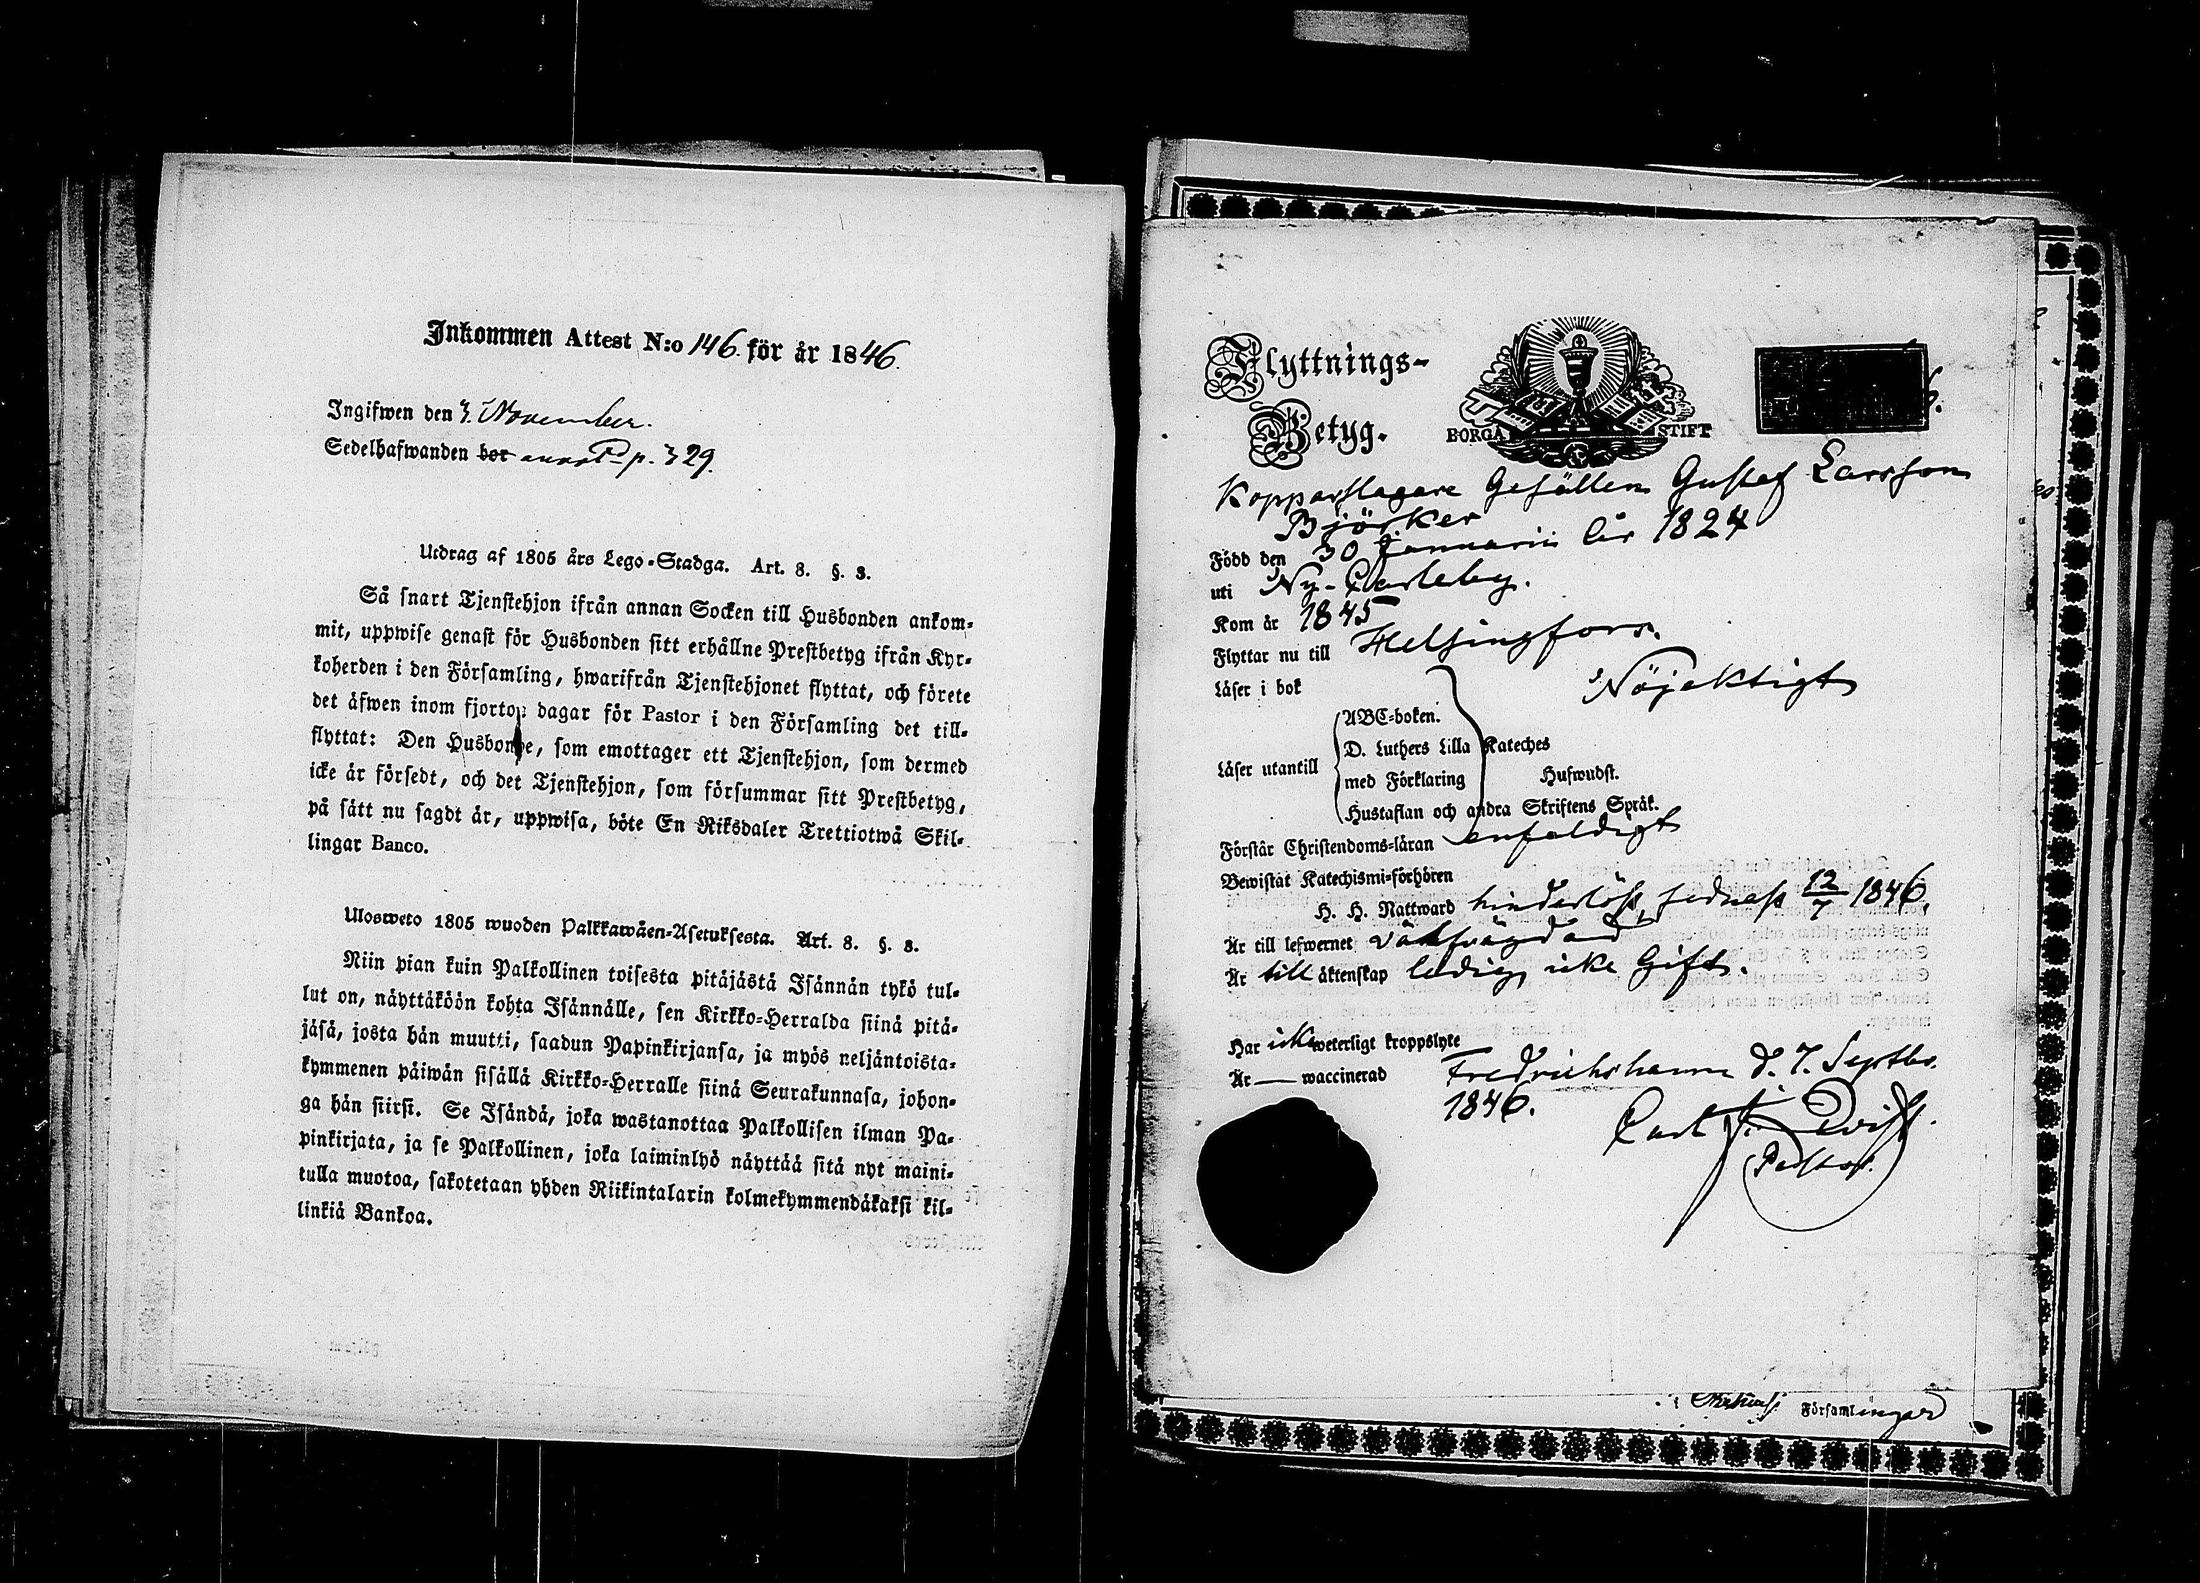 Inkommen Attest N:o 146. för år 1846.
Ingifwen den 3. November.
Sedelhafwanden bor annot. p. 329.
Utdrag af 1805 års Lego-Stadga. Art. 8. §. 3.
Så snart Tjenstehjon ifrån annan Socken till Husbonden ankom-
mit, uppwise genast för Husbonden sitt erhållne Prestbetyg ifrån Kyr-
koherden i den Församling, hwarifrån Tjenstehjonet flyttat, och förete
det äfwen inom fjorton dagar för Pastor i den Församling det till-
flyttat: Den Husbonde, som emottager ett Tjenstehjon, som dermed
icke är försedt, och det Tjenstehjon, som försummar sitt Prestbetyg,
på sätt nu sagdt är, uppwisa, böte En Riksdaler Trettiotwå Skil-
lingar Banco.
Ulosweto 1805 wuoden Palkkawäen-Asetuksesta. Art. 8. §. 3.
Niin pian kuin Palkollinen toisesta pitäjästä Isännän tykö tul-
lut on, näyttäköön kohta Isännälle, sen Kirkko-Herralda siinä pitä-
jäsä, josta hän muutti, saadun Papinkirjansa, ja myös neljäntoista-
kymmenen päiwän sisällä Kirkko-Herralle siinä Seurakunnasa, johon-
ga hän siirsi. Se Isändä, joka wastanottaa Palkollisen ilman Pa-
pinkirjata, ja se Palkollinen, joka laiminlyö näyttää sitä nyt maini-
tulla muotoa, sakotetaan yhden Riikintalarin kolmekymmendäkaksi kil-
linkiä Bankoa.
Flyttnings-
Betyg.
BORGÅ STIFT
Kopparslagare Gesällen Gustaf Larsson
Björker
Född den 30 Januarii år 1824
uti Ny-Carleby.
Kom år 1845
Flyttar nu till Helsingfors.
Läser i bok Nöjaktigt
Läser utantill
ABC-boken.
D. Luthers Lilla Kateches
med Förklaring Hufwudst.
Hustaflan och andra Skriftens Språk.
Förstår Christendoms-läran enfaldigt
Bewistat Katechismi-förhören
H. H. Nattward hinderlöst, sednast 12/7 1846.
Är till lefwernet välfrägdad
Är till äktenskap ledig, icke Gift.
Har icke weterligt kroppslyte
Är — waccinerad Fredrichshamn d. 7. Septbr.
1846.
Carl
Pastor.
Församlingar